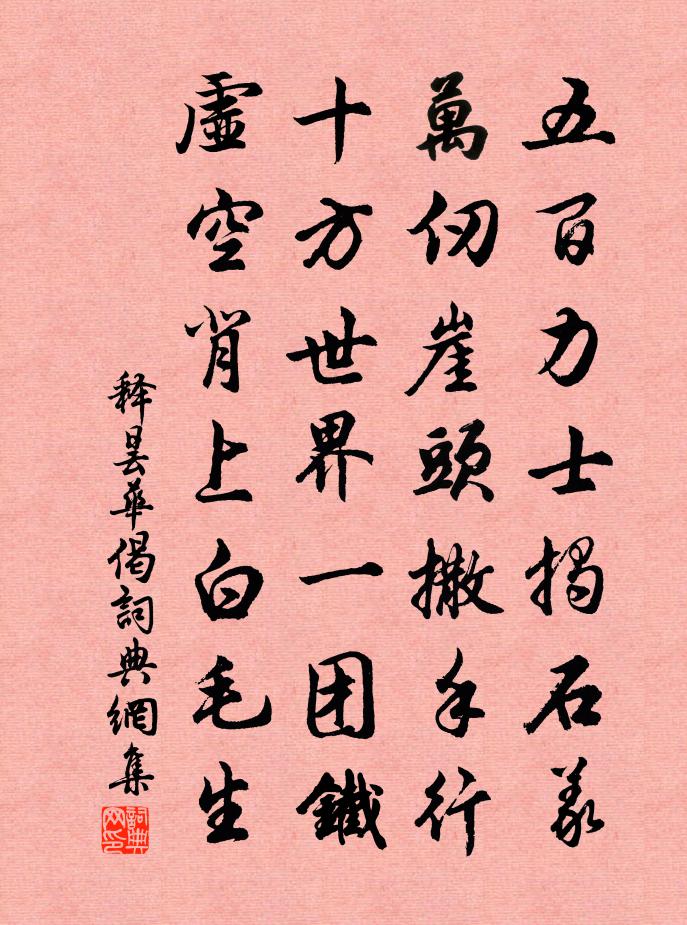 五百力士揭石義
萬仞崖頭撒手行
十方世界一团鐵
虛空背上白毛生
释曇華偈詞典網集
詞典网印